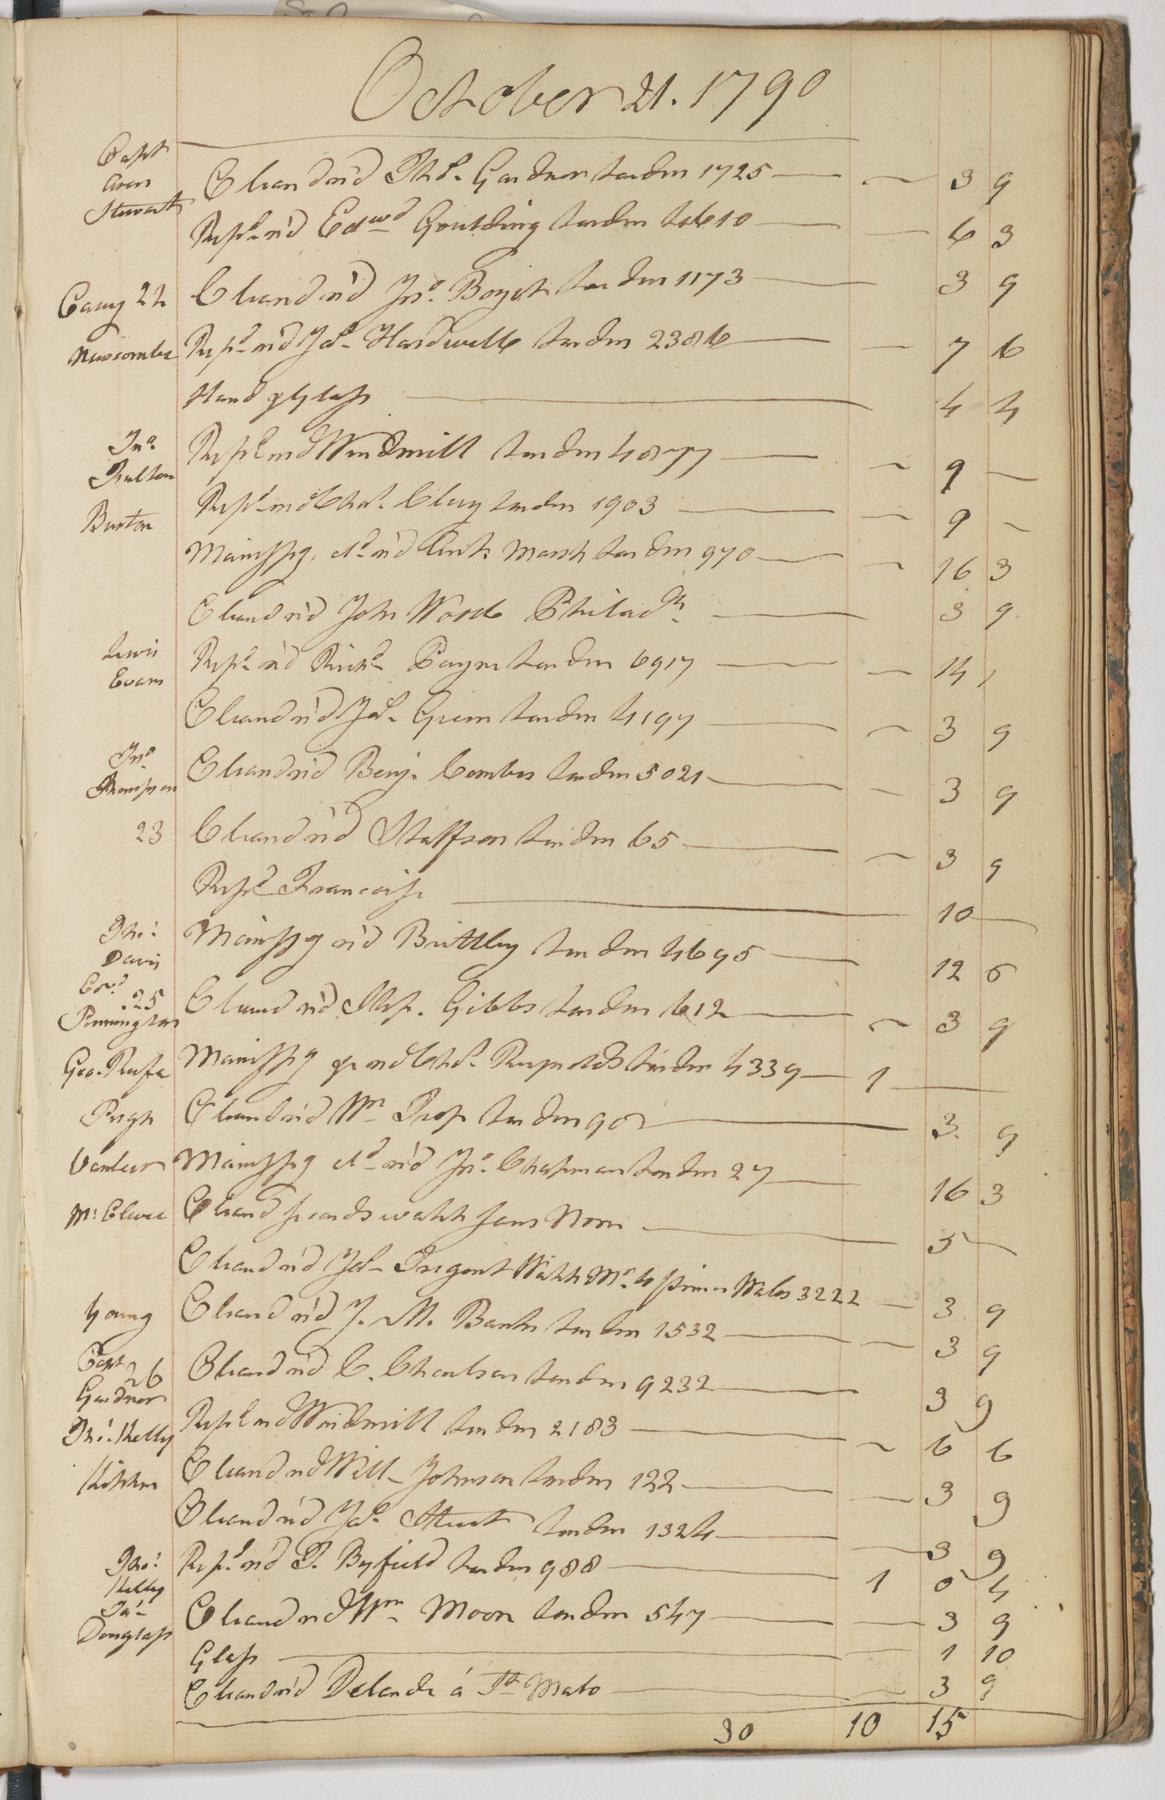 October 21. 1790
Capt
Aron
Stewart
Cleand md Thos. Gardner London 1725 — 3 9
Repd. md Edwd Goulding London 10610 — 6 3
Casey 22 Cleand md Jno. London 1173 — 3 9
Newcombe Repd. md Jos. Hardwell London 2386 — 7 6
Hand & Glass — 4 4
Jno. Fulton Repd. md Windmill London 4877 — 9 —
Burton Repd. md Chas. Clay London 1903 — 9 —
Mainspg, Cd. md Marsh London 970 — 16 3
Cleand md John Wood Philada. — 3 9
Lewis Evans Repd. md Richd. Payne London 6917 — 14 1
Cleand md Jos. Green London 4197 — 3 9
Jno. Thompson Cleand md Benj. Combes London 5021 — 3 9
23 Cleand md London 65 — 3 9
Repd. — 10 —
Thos. Davis Mainspg md Brittley London 4695 — 12 6
25
Pennington Cleand md Gibbs London 612 — 3 9
Geo. Mainspg md Chas. Reynolds London 4339 — 1 —
Pugh Cleand md Wm. London 902 — 3 9
Mainspg Cd. md Jno. Chapman London 27 — 16 3
Mc. Cleand watch — 5 —
Cleand md Jos. Watch 3222 — 3 9
Young Cleand md J. M. Banks London 1532 — 3 9
Capt 26
Gardner Cleand md C. Charleson London 9232 — 3 9
Thos. Kelly Repd. md Windmill London 2183 — 6 6
Cleand md Will. Johnson London 122 — 3 9
Cleand md Jas. London 1324 — 3 9
Thos. Kelly Repd. md T. Byfield London 988 — 1 0 4
Jas. Douglass Cleand md Wm. Moon London 547 — 3 9
Glass — 1 10
Cleand md á — 3 9
30 10 15